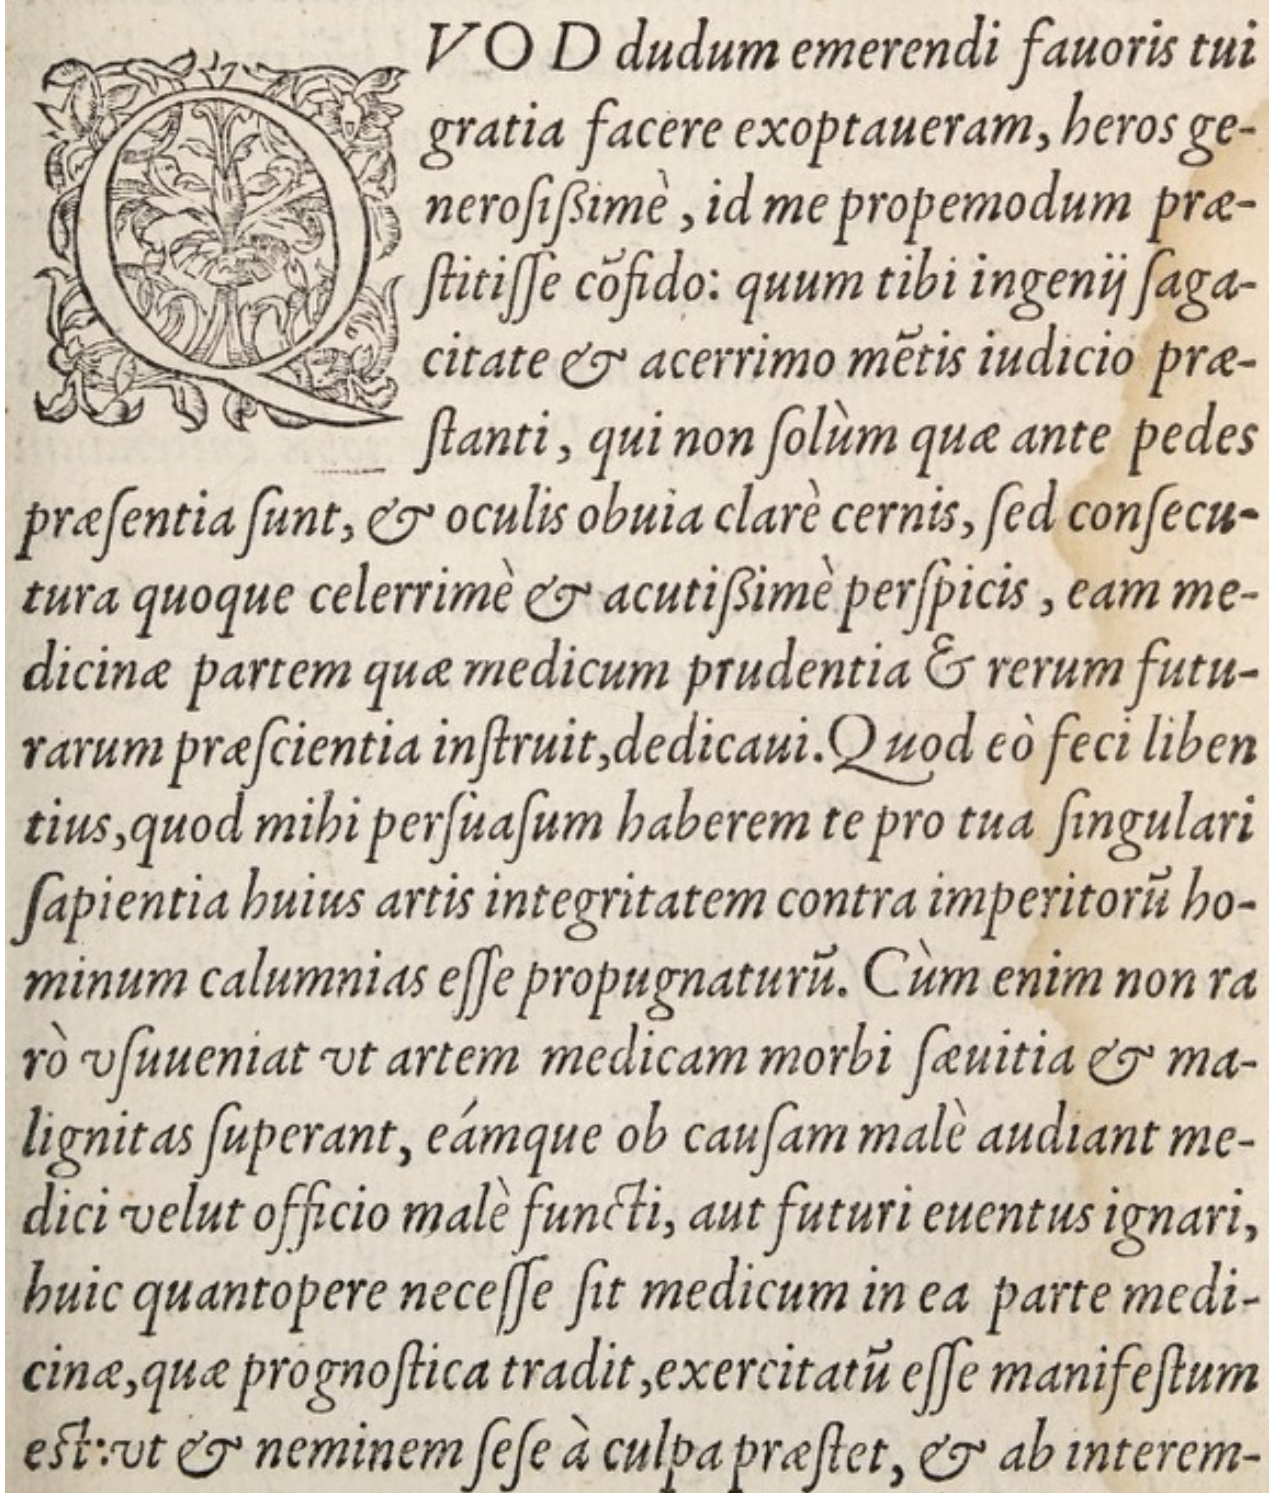 QVOD dudum emerendi fauoris tui
gratia facere exoptaueram, heros ge-
neroſiſßimè, id me propemodum præ-
ſtitiſſe cõfido: quum tibi ingenij ſaga-
citate & acerrimo mẽtis iudicio præ-
ſtanti, qui non ſolùm quæ ante pedes
præſentia ſunt, & oculis obuia clarè cernis, ſed conſecu-
tura quoque celerrimè & acutißimè perſpicis, eam me-
dicinæ partem quæ medicum prudentia & rerum futu-
rarum præſcientia inſtruit, dedicaui. Quod eò feci liben
tius, quod mihi perſuaſum haberem te pro tua ſingulari
ſapientia huius artis integritatem contra imperitorũ ho-
minum calumnias eſſe propugnaturũ. Cùm enim non ra
rò vſuueniat vt artem medicam morbi ſæuitia & ma-
lignitas ſuperant, eámque ob cauſam malè audiant me-
dici velut officio malè functi, aut futuri euentus ignari,
huic quantopere neceſſe ſit medicum in ea parte medi-
cinæ, quæ prognoſtica tradit, exercitatũ eſſe manifeſtum
eſt: vt & neminem ſeſe à culpa præſtet, & ab interem-